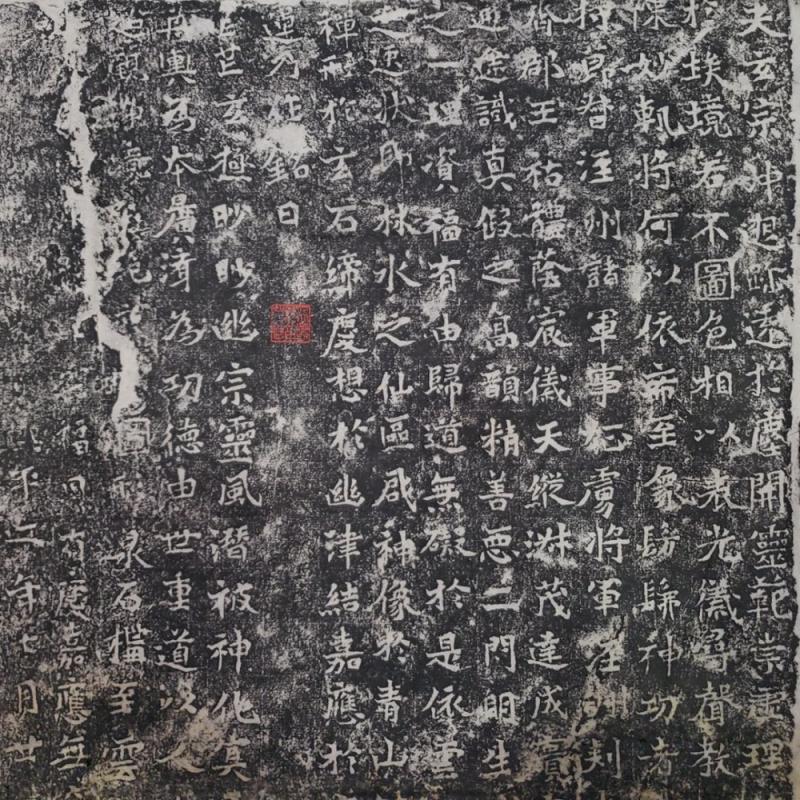 夫玄宗沖邈跡遠於塵開靈範崇虛理
於埃境若不圖色相以表光儀尋聲教
陳妙軌將何以依希至象髣髴神功者
持節督涇州諸軍事征虜將軍涇州刺
齊郡王祐體蔭宸儀天縱淑茂達成實
通途識真假之高韻精善惡二門明生
之一理資福有由歸道無礙於是依雲
之逸狀即林水之仙區啟神像於青山
禪形於玄石締慶想於幽津結嘉應於
運乃作銘曰
茫玄極眇眇幽宗靈風潛被神化真
舟輿為本廣濟為功德由世重道以人
觀 境 圖形泉石 至雲
有慶嘉應無
平二年七月廿